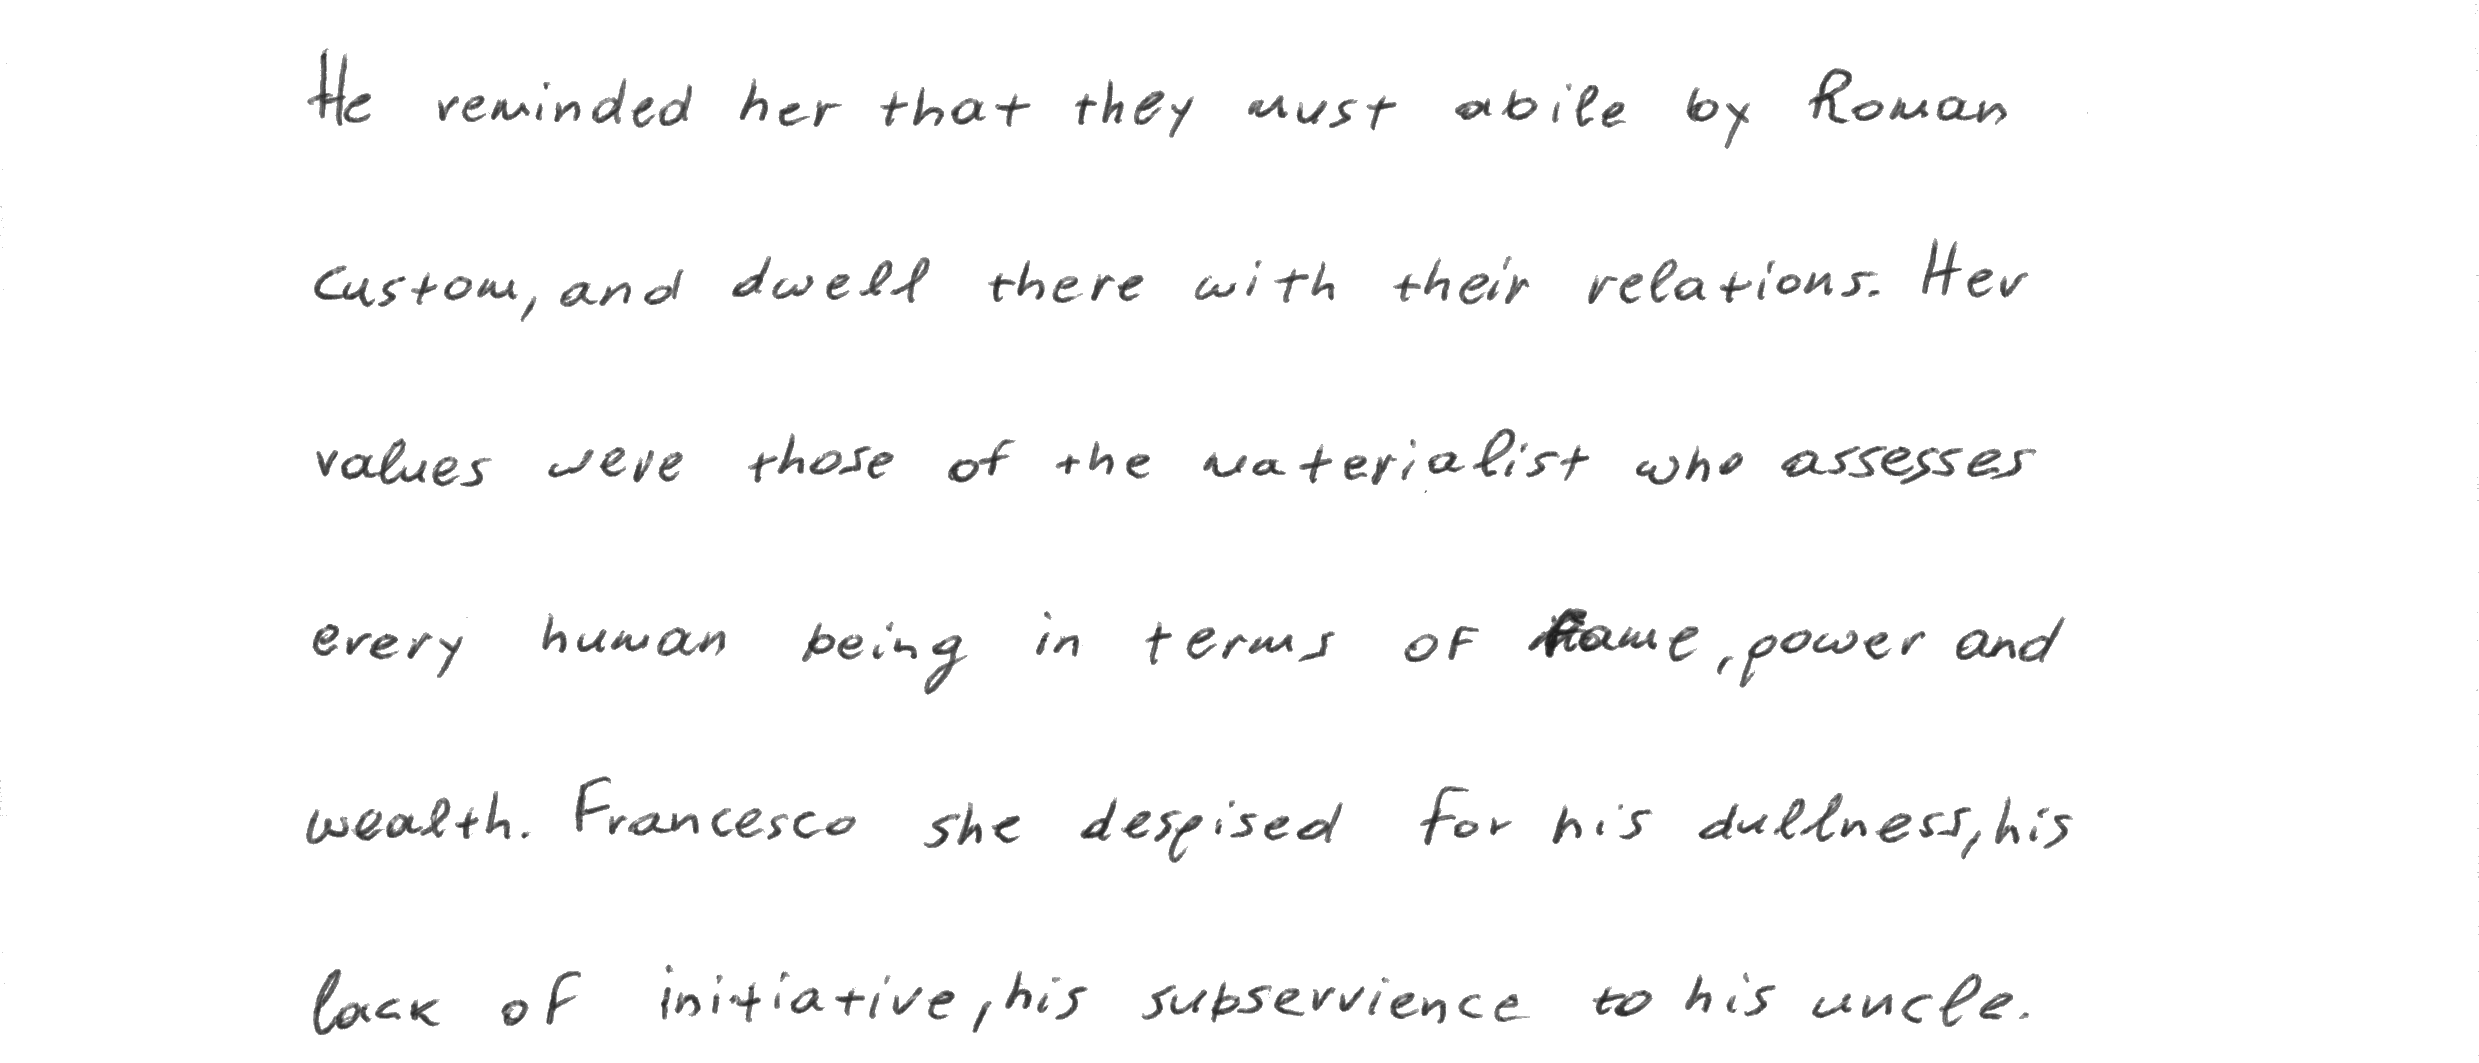 He reminded her that they must abile by Roman
custom, and dwell there with their relations. Her
values were those of the materialist who assesses
every human being in terms of fame, power and
wealth. Francesco she despised for his dullness, his
lack of initiative, his subservience to his uncle.